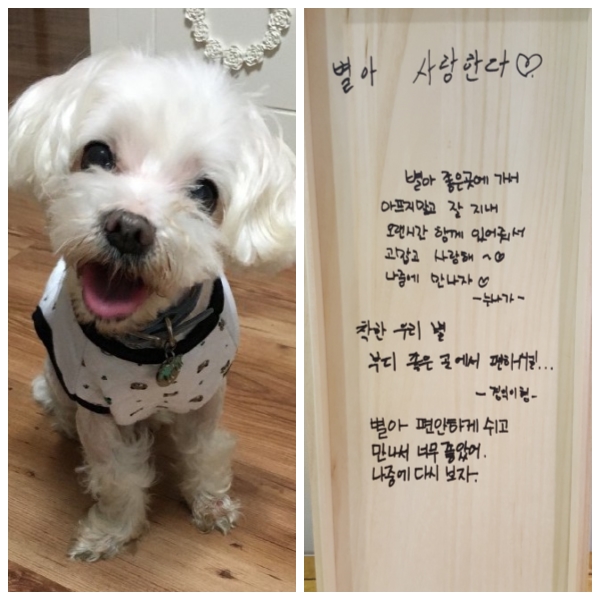 별아 사랑한다♡
별아 좋은곳에 가서
아프지말고 잘 지내
오랜시간 함께 있어줘서
고맙고 사랑해 ~♡
나중에 만나자 ♡
-누나가-
착한 우리 별
부디 좋은 곳에서 편하길...
별아 편안하게 쉬고
만나서 너무 좋았어.
나중에 다시 보자.